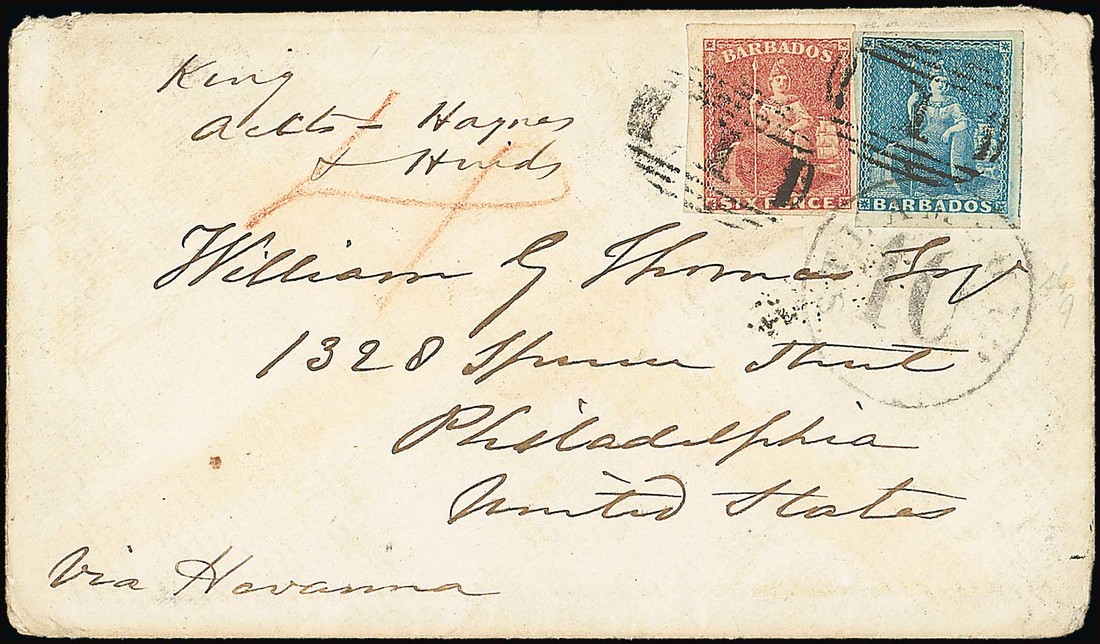 King
Acct - Haynes
& Hinds
BARBADOS
SIX PENCE
BARBADOS
William G Thomas Esqr
1328 Spruce Street
Philadelphia
United States
Via Havanna
4
10